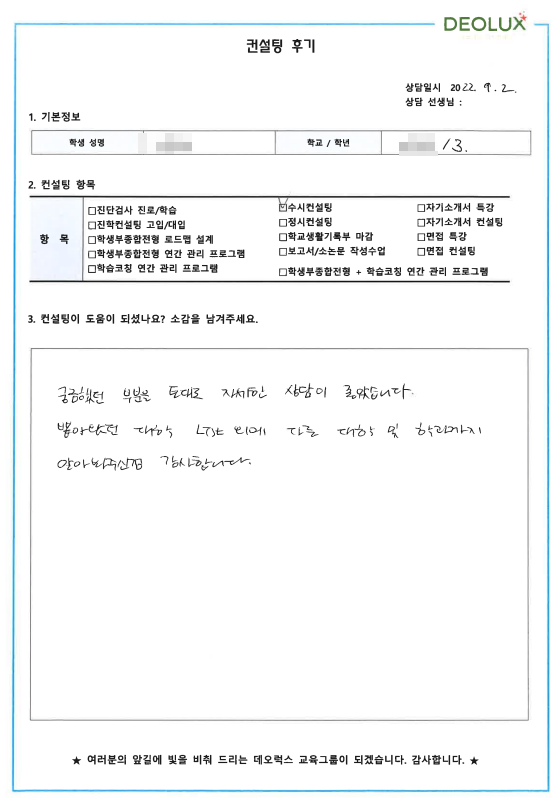 DEOLUX
컨설팅 후기
상담일시 2022. 9. 2.
상담 선생님 :
1. 기본정보
학생 성명 학교 / 학년 /3.
2. 컨설팅 항목
항 목
□진단검사 진로/학습 ☑수시컨설팅 □자기소개서 특강
□진학컨설팅 고입/대입 □정시컨설팅 □자기소개서 컨설팅
□학생부종합전형 로드맵 설계 □학교생활기록부 마감 □면접 특강
□학생부종합전형 연간 관리 프로그램 □보고서/소논문 작성수업 □면접 컨설팅
□학습코칭 연간 관리 프로그램 □학생부종합전형 + 학습코칭 연간 관리 프로그램
3. 컨설팅이 도움이 되셨나요? 소감을 남겨주세요.
궁금했던 부분을 토대로 자세한 상담이 좋았습니다.
뽑아놨던 대학 List 외에 다른 대학 및 학과까지
알아봐주신점 감사합니다.
★ 여러분의 앞길에 빛을 비춰 드리는 데오럭스 교육그룹이 되겠습니다. 감사합니다. ★